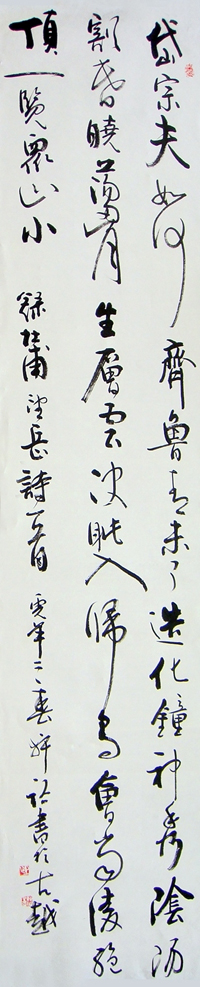 岱宗夫如何齊魯青未了造化鐘神秀陰陽
割昏曉蕩胸生層雲決眥入歸鳥會當凌絕
頂一覽眾山小 錄杜甫望岳詩一首 年 春 書於古越